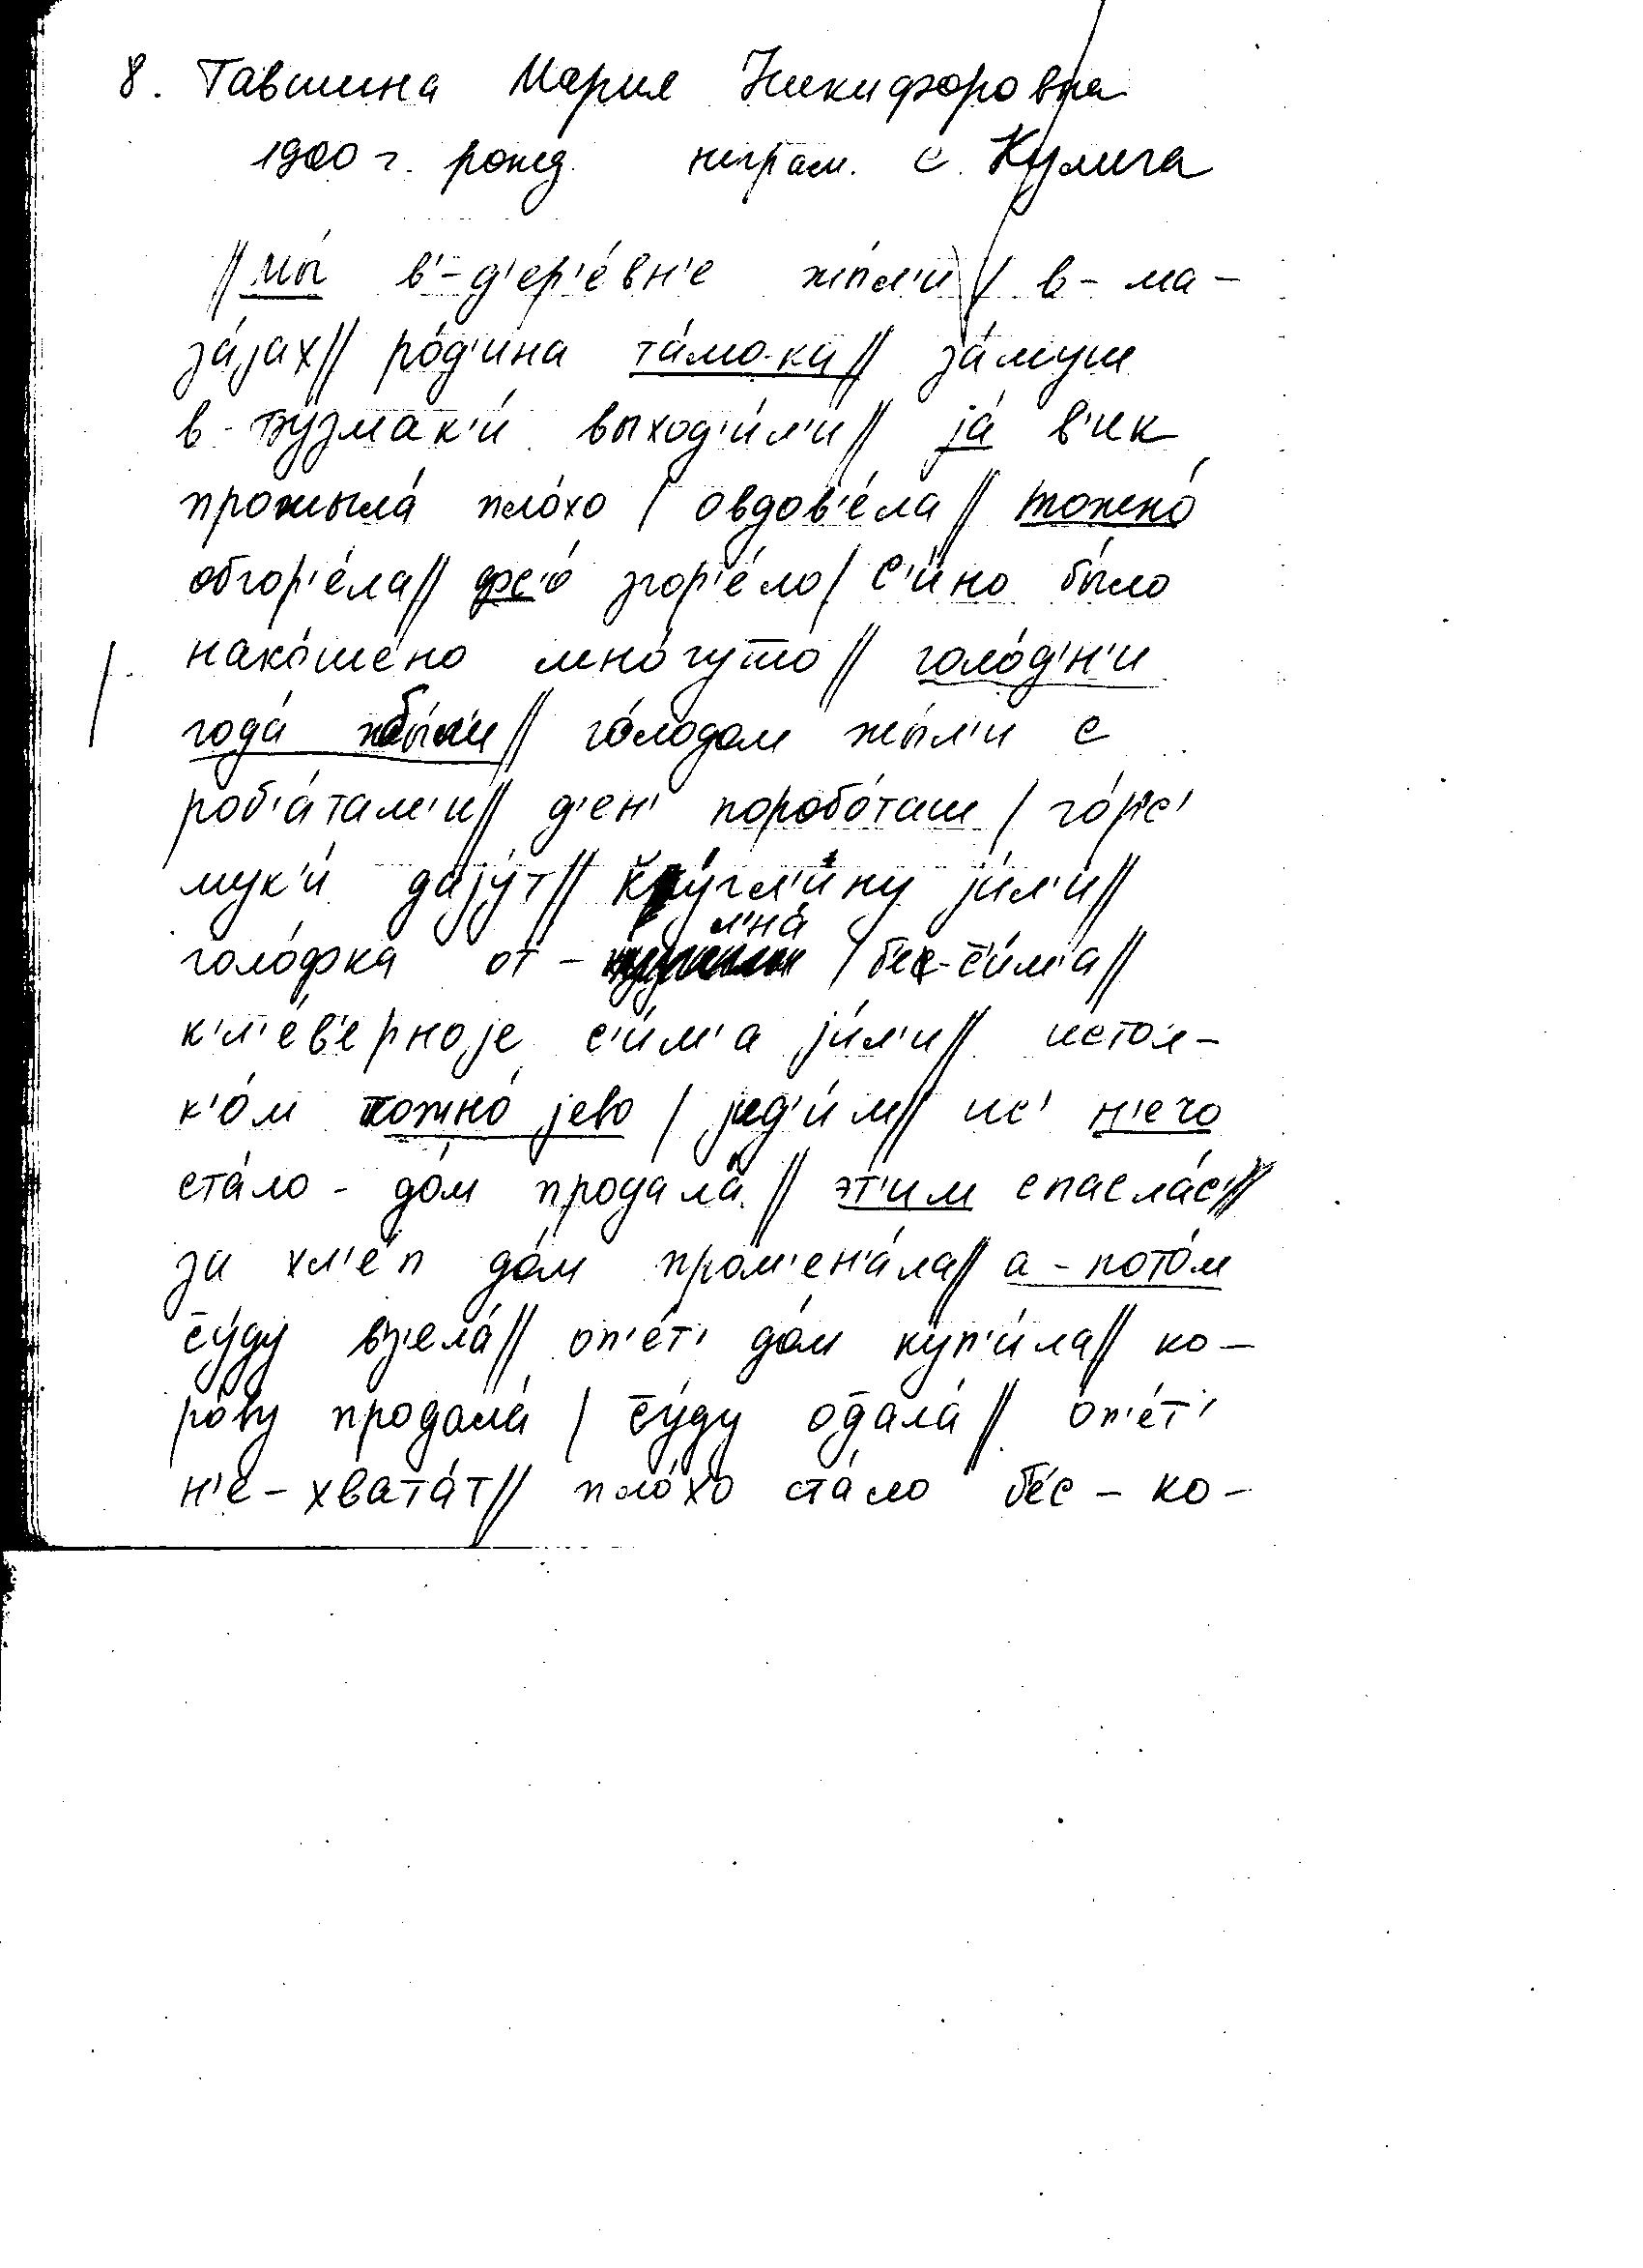 8. Тавшина Мария Никифоровна
1900 г. рожд. неграм. с. Кулига
// мы́ в'-д'ер'е́вн'е жы́л'и // в-ма-
за́jах // ро́д'ина та́мо-ка // за́муш
в-Бузмак'и́ выход'и́л'и // jа́ в'ик
прожыла́ пло́хо / овдов'е́ла // тожно́
обгор'е́ла // фс'о́ згор'е́ло / с'и́но бы́ло
нако́шено мно́гуто // голо́д'н'и
года́ бы́л'и // го́лодом жы́л'и с
роб'а́там'и // д'ен' поробо́таш / го́рс'
мук'и́ даjу́т // jи́л'и //
голо́фка от - л'на́ / бес-с'и́м'а //
к'л'е́в'ерноjе с'и́м'а jи́л'и // истол-
к'о́м тожно́ jево / jед'и́м // ис' н'ечо
ста́ло - до́м продала́ // э́т'им спасла́с' //
за хл'е́п до́м пром'ен'а́ла // а - пото́м
с̄у́ду вз'ела́ // оп'е́т' до́м куп'и́ла // ко-
ро́ву продала́ / с̄у́ду од̄ала́ // оп'е́т'
н'е-хвата́т // пло́хо ста́ло бес - ко-